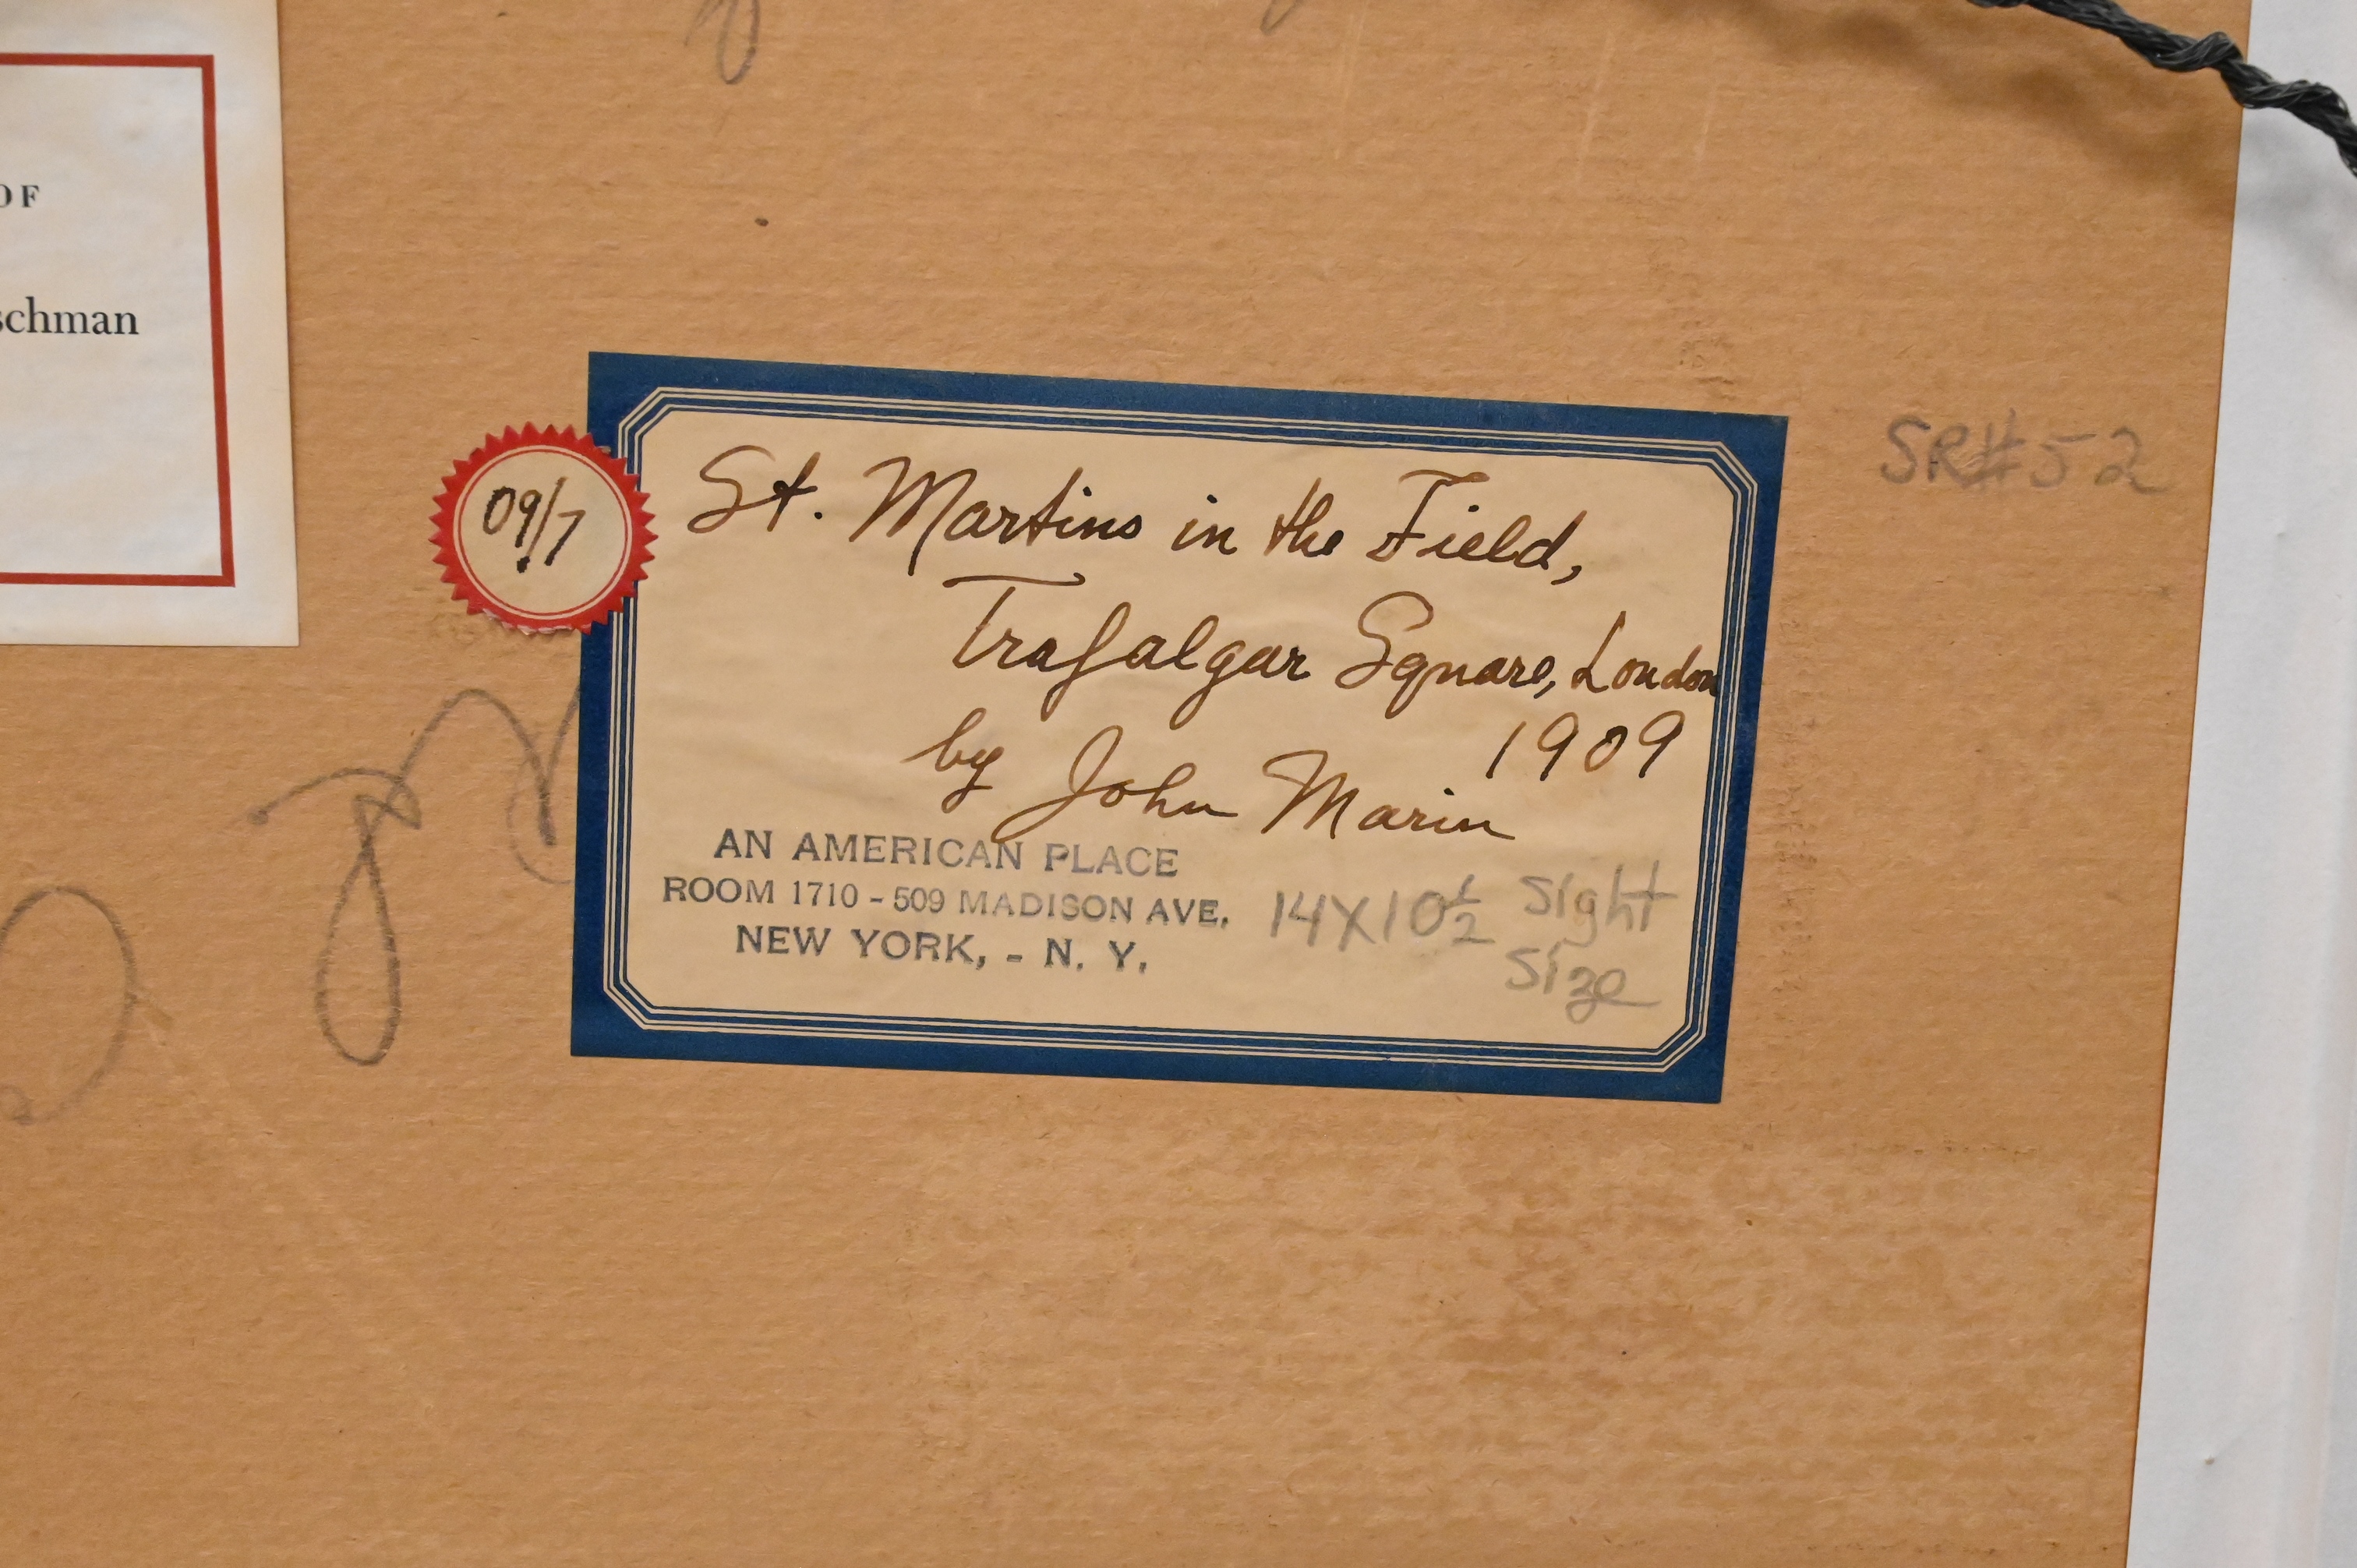 OF
schman
09/7
St. Martins in the Field,
Trafalgar Square, London
1909
by John Marin
AN AMERICAN PLACE
ROOM 1710 - 509 MADISON AVE.
NEW YORK, - N. Y.
14X10½ Sight
Size
SR#52